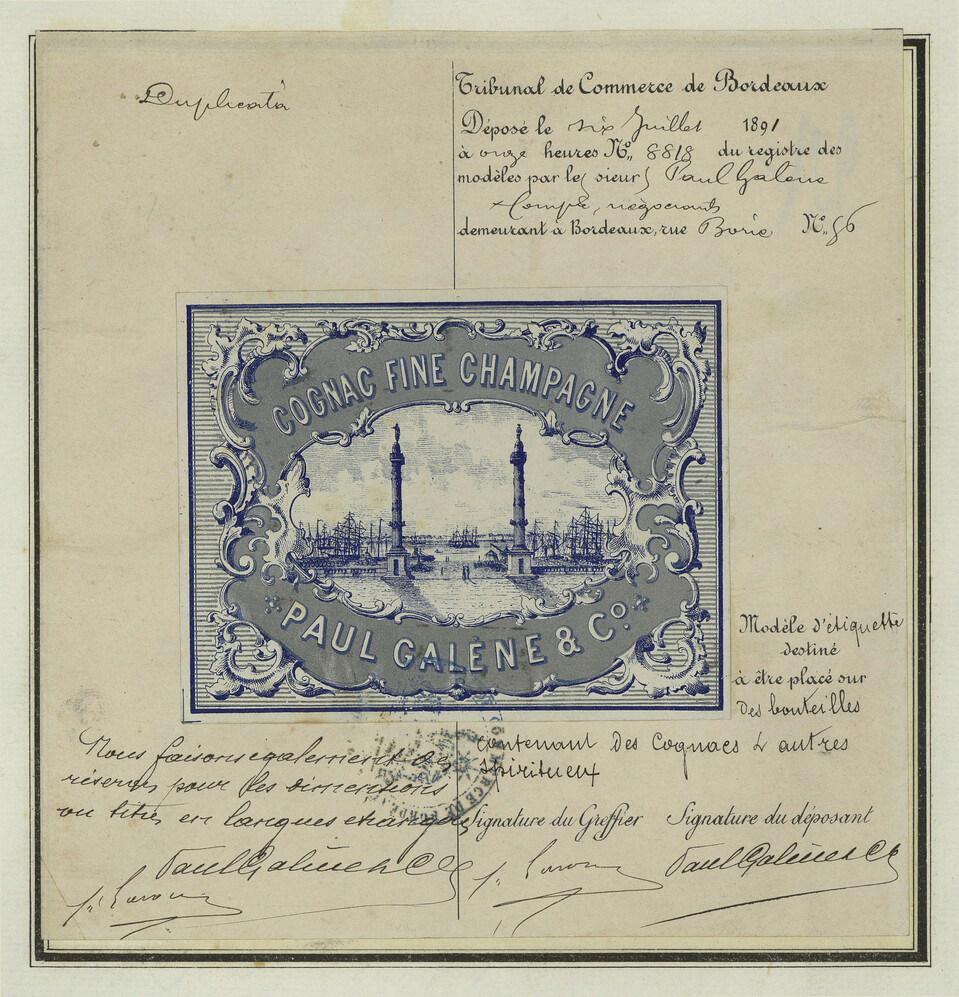 Duplicata
Tribunal de Commerce de Bordeaux
Déposé le six Juillet 1891
à onze heures N° 8818 du registre des
modèles par le( sieur ) Paul Galene
& Compie, négociants
demeurant à Bordeaux, rue Borie N° 56
COGNAC FINE CHAMPAGNE
PAUL GALÈNE & Cº
Modèle d'étiquette
destiné
à être placé sur
des bouteilles
contenant des Cognacs & autres
spiritueux
Nous faisons également des
réserves pour les dimensions
ou titres en langues étrangères
COMMERCE DE BORDEAUX
Signature du Greffier Signature du déposant
Paul Galène & Cie
Paul Galène & Cie